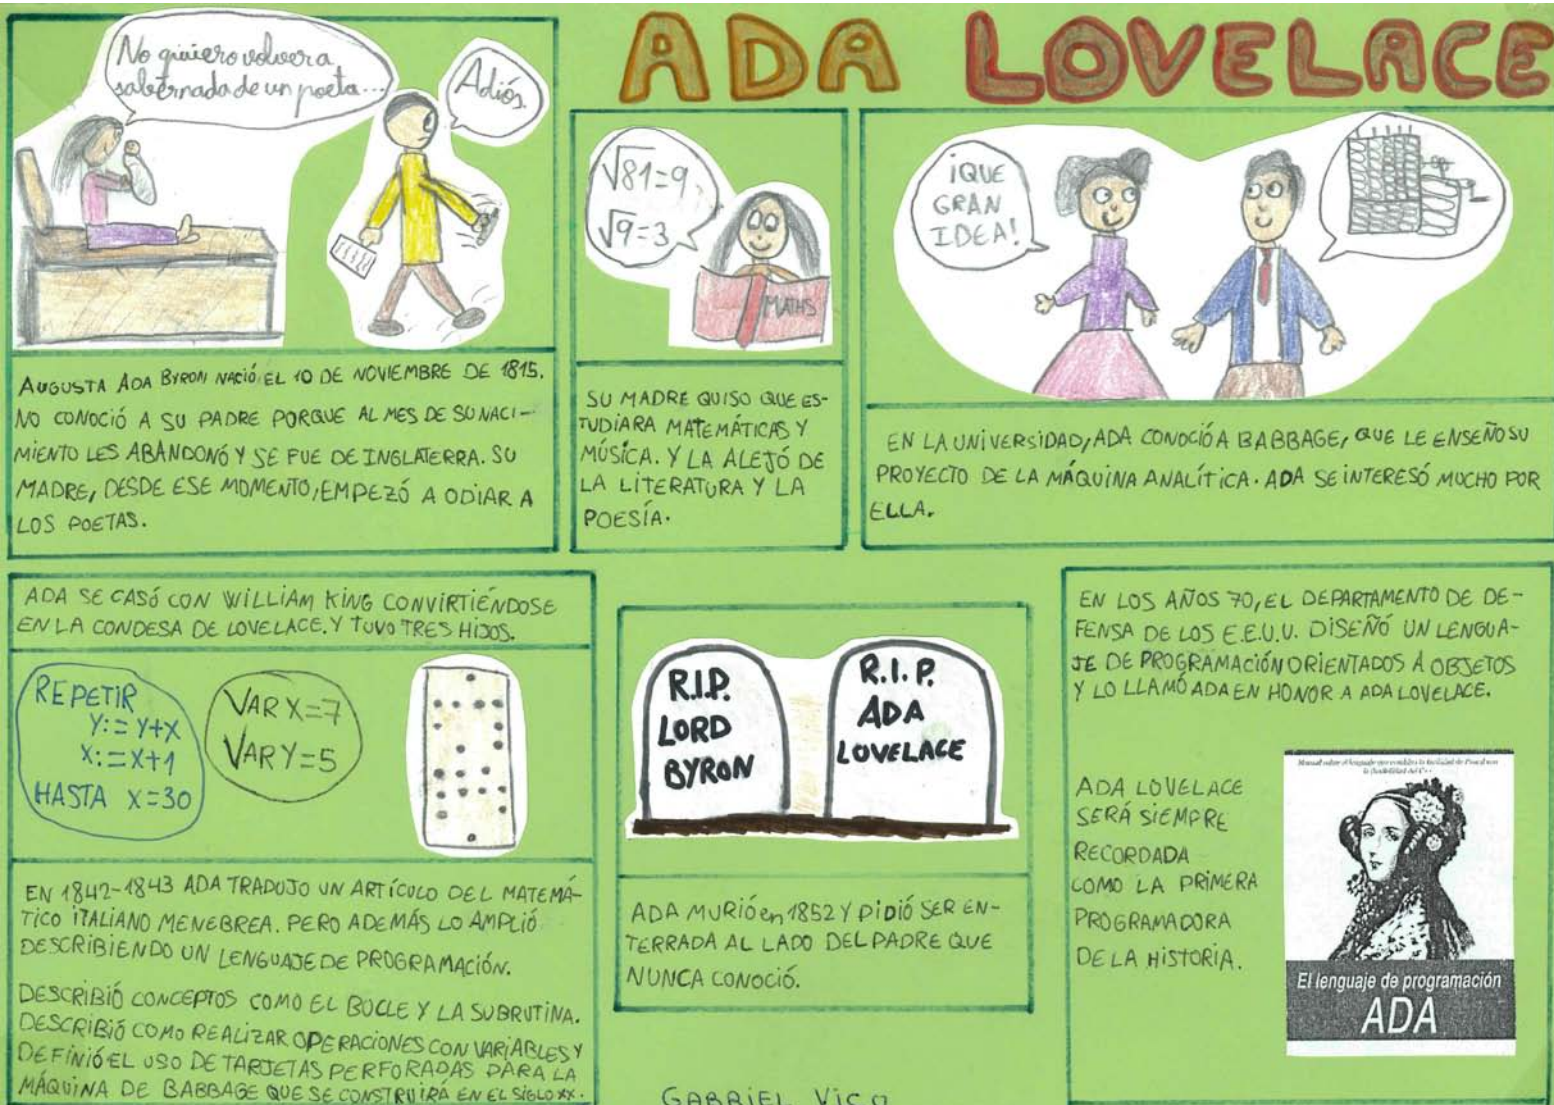 ADA LOVELACE
No quiero volver a
saber nada de un poeta...
Adiós.
AUGUSTA ADA BYRON NACIÓ EL 10 DE NOVIEMBRE DE 1815.
NO CONOCIÓ A SU PADRE PORQUE AL MES DE SU NACI-
MIENTO LES ABANDONÓ Y SE FUE DE INGLATERRA. SU
MADRE, DESDE ESE MOMENTO, EMPEZÓ A ODIAR A
LOS POETAS.
√81=9
√9=3
MATHS
SU MADRE QUISO QUE ES-
TUDIARA MATEMÁTICAS Y
MÚSICA. Y LA ALEJÓ DE
LA LITERATURA Y LA
POESÍA.
¡QUE
GRAN
IDEA!
EN LA UNIVERSIDAD, ADA CONOCIÓ A BABBAGE, QUE LE ENSEÑO SU
PROYECTO DE LA MÁQUINA ANALÍTICA. ADA SE INTERESÓ MUCHO POR
ELLA.
ADA SE CASÓ CON WILLIAM KING CONVIRTIÉNDOSE
EN LA CONDESA DE LOVELACE. Y TUVO TRES HIJOS.
REPETIR
Y:=Y+X
X:=X+1
HASTA X=30
VAR X=7
VAR Y=5
EN 1842-1843 ADA TRADUJO UN ARTÍCULO DEL MATEMÁ-
TICO ITALIANO MENEBREA. PERO ADEMÁS LO AMPLIÓ
DESCRIBIENDO UN LENGUAJE DE PROGRAMACIÓN.
DESCRIBIÓ CONCEPTOS COMO EL BUCLE Y LA SUBRUTINA.
DESCRIBIÓ COMO REALIZAR OPERACIONES CON VARIABLES Y
DEFINIÓ EL USO DE TARJETAS PERFORADAS PARA LA
MÁQUINA DE BABBAGE QUE SE CONSTRUIRÁ EN EL SIGLO XX.
R.I.P.
LORD
BYRON
R.I.P.
ADA
LOVELACE
ADA MURIÓ en 1852 Y PIDIÓ SER EN-
TERRADA AL LADO DEL PADRE QUE
NUNCA CONOCIÓ.
GABRIEL VICO
EN LOS AÑOS 70, EL DEPARTAMENTO DE DE-
FENSA DE LOS E.E.U.U. DISEÑÓ UN LENGUA-
JE DE PROGRAMACIÓN ORIENTADOS A OBJETOS
Y LO LLAMÓ ADA EN HONOR A ADA LOVELACE.
ADA LOVELACE
SERÁ SIEMPRE
RECORDADA
COMO LA PRIMERA
PROGRAMADORA
DE LA HISTORIA.
Manual sobre el lenguaje que combina la facilidad de Pascal con
la flexibilidad del C++
El lenguaje de programación
ADA